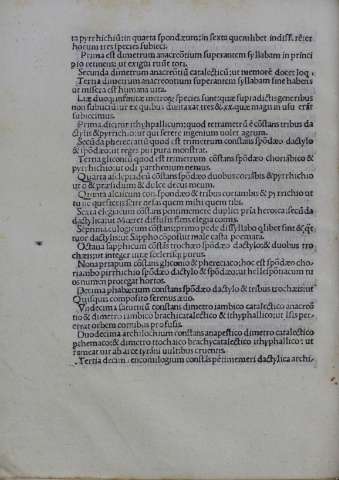 ta pyrrhichiũ: in quarta spondæum: in sexta quemlibet indiff. rẽ: er
hocum tres species subieci.
Prima est dimetrum anacreõtium superantem syllabam in princi
pio retinens: ut exigui
Secunda dimetrum anacreõtiũ catalecticũ: ut memorẽ docet
Tertia dimetrum anacreõtium superantem syllabam fine habens
ut misera est humana uita.
species sunt: quæ supradictis generibus
non subiiciũt: ex quibus dũtaxat tres &
subiecimus.
Prima dicitur ithyphallicum: quod tetrametrũ ẽ cõstans tribus da
ctylis & pyrrichio: ut qui serere ingenium uolet agrum.
Secũda pherecratiũ quod est trimetrum constans spondæo dactylo
& spõdæo: ut reges pii purpura monstrat.
Tertia gliconiũ quod est trimetrum cõstans spõdæo choriãbico &
pyrrhichio: ut odi parthenium nemus.
Quarta asclepiadeũ cõstans spõdæo duobus coriãbis & pyrrhichio
ut o & præsidium & dulce decus meum.
Quinta alcaicum constans spondæo & tribus coriambis & pyrrichio ut
tu ne quæsieris scire nefas quem mihi quem tibi.
Sexta elegiacum cõstans pentimemere duplici prĩa heroica: secũda
dactylica: ut Mæret dissutis flens elegia comis.
Septima eulogicum cõstans: primo pede dissyllabo
tuor dactylis: ut Sappho composuit male casta poemata.
Octaua sapphicum cõstãs trochæo spõdæo dactylo: & duobus tro
chæis: ut integer uitæ scelerisq; purus.
Nona priapum cõstans gliconio & pherecatio; hoc est spõdæo cho
riambo pirrhichio spõdæo dactylo & spõdæo: ut hellespõtiacum tu
os numen protegat hortos.
Decima phaleucum constans spõdæo dactylo & tribus trochæis: ut
Quisquis composito serenus æuo.
Vndecima saturniũ constans dimetro iambico catalectico anacreõ
tio & dimetro iambico brachicatalectico & ithyphallico: ut Isis per-
errat orbem cornibus profusis.
Duodecima archilochium constans anapestico dimetro catalectico
& dimetro trochaico brachycatalectico ithyphallico: ut
ab arce tyrãni uultibus cruentis.
Tertia decim: encomologicum constãs pẽtimemeri dactylica archi-